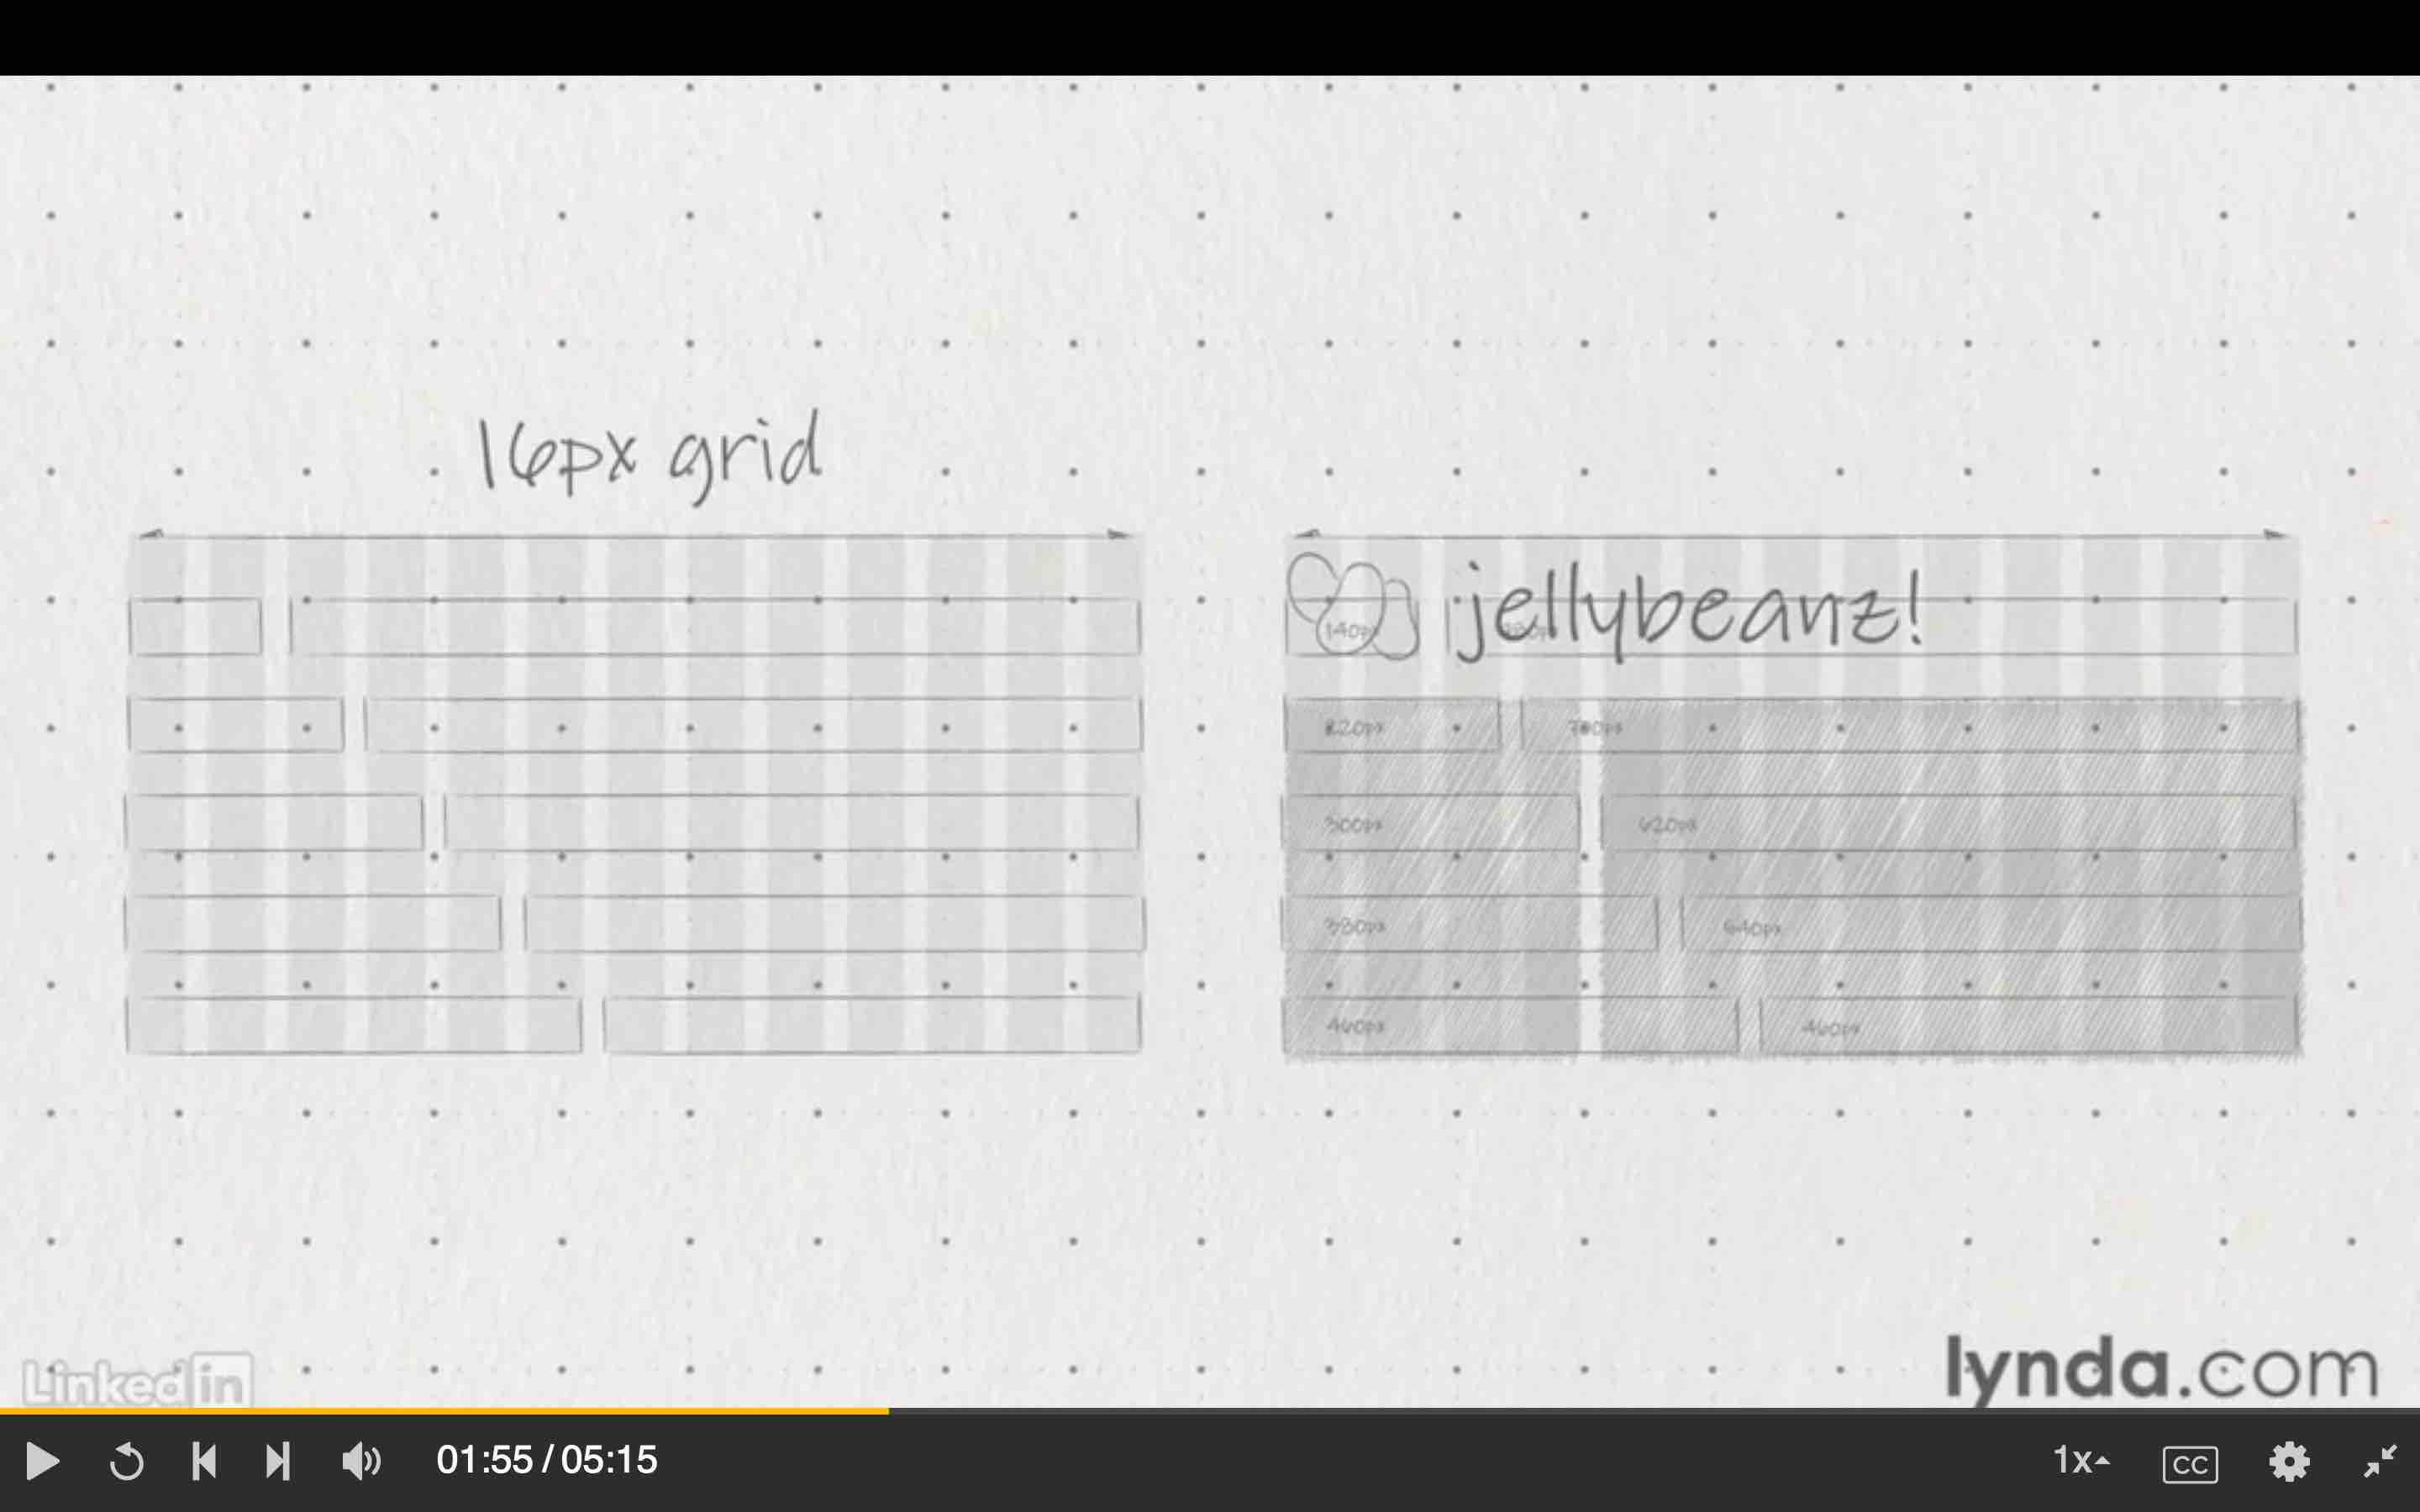 16px grid
jellybeanz!
140px
220px
780px
300px
620px
380px
540px
460px
460px
LinkedIn
lynda.com
01:55 / 05:15
1x
CC